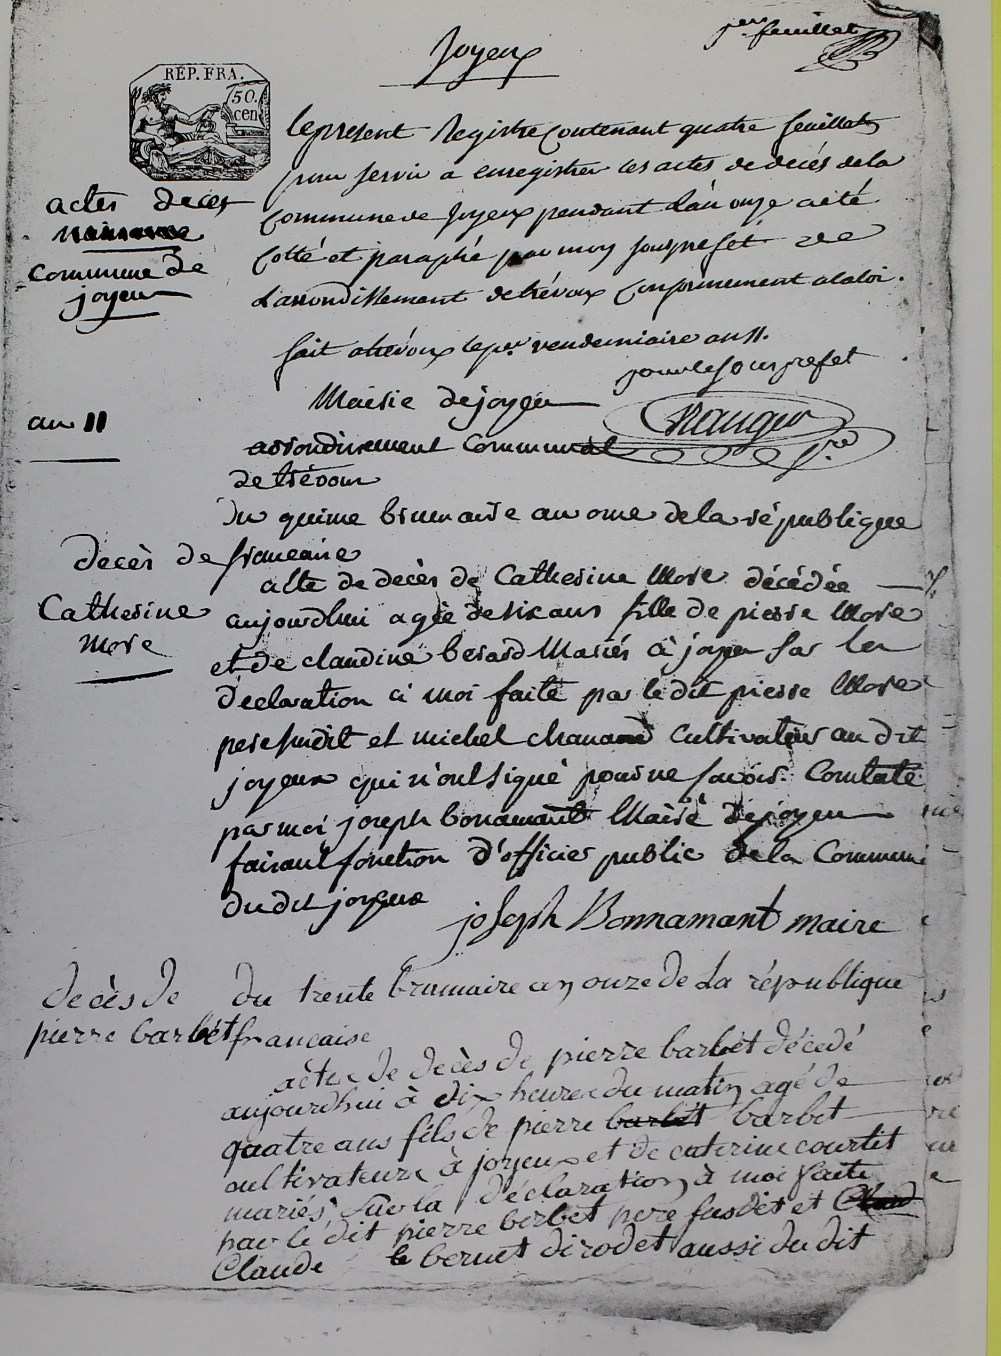 Joyeux
1er feuillet
REP. FRA.
50.
cen
le present Registre Contenant quatre feuillets
pour servir a enregistrer les actes de decés de la
Commune de Joyeux pendant l'an onze a été
Cotté et paraphé par moy sousprefét de
L'arrondissement de trévoux Conformement a la loi.
fait a trévoux le per vendemiaire an 11.
pour le sousprefet
actes deces
Commune de
joyeu
an 11
Mairie de joyeu
arrondissement Communal
de trévoux
Du quinze brumaire an onze de la république
francaise
decès de
Catherine
More
acte de decès de Catherine More décédée
aujourdhui agée de six ans fille de pierre More
et de claudine berard Mariés à joyeu sur les
déclaration à moi faite par le dit pierre More
pere susdit et michel chanard Cultivateur au dit
joyeux qui n'ont signé pour ne savoir. Constaté
par moi joseph bonamant Maire de joyeu
faisant fonction d'officier public de la Commune
du dit joyeux
joseph Bonnamant maire
decès de
pierre barbét
du trente brumaire an onze de la république
francaise
acte de decès de pierre barbét décédé
aujourdhui à dix heures du matin agé de
quatre ans fils de pierre barbét barbet
cultivateure à joyeux et de caterine courtit
mariés sur la déclaration à moi faite
par le dit pierre berbet pere susdit et Claud
Claude le bernet dirodet aussi du dit